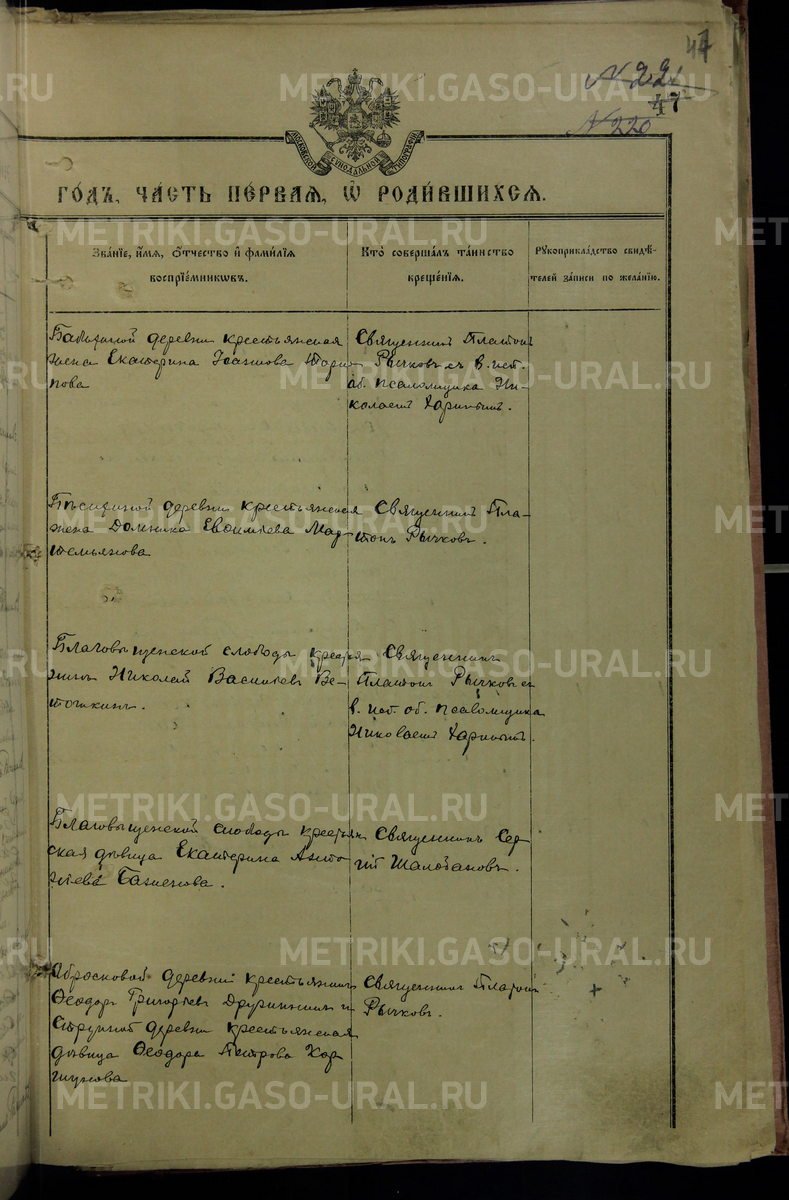 47
№ 221
47
№ 220
МОСКОВСКОЙ СѴНОДАЛЬНОЙ ТИПОГРАФІИ
ГО́ДЪ, ЧА́СТЬ ПЕ́РВАЯ, Ѡ҆ РОДИ́ВШИХСЯ.
Зва́нїе, и҆́мя, ѻ҆́тчество и҆ фами́лїя
воспрїе́мникѡвъ.
Кто̀ соверша́лъ та́инство
креще́нїя.
Рꙋкоприкла́дство свидѣ́-
телей за́писи по жела́нїю.
деревни крестьянская
жена Екатерина Іоаннова
пова
Священникъ Платонъ
Рычковъ съ в. исп.
об. псаломщика Ни-
колаемъ Хариным.
деревни крестьянская
жена Домника Евфиміева Мар-
темьянова
Священникъ Пла-
тонъ Рычковъ.
Благовѣщенской слободы крестья
нинъ Николай Васильевъ Ве-
тошкинъ.
Священникъ
Платонъ Рычковъ съ
в. исп. об. псаломщика
Николаемъ Хариным.
Благовѣщенской слободы крестьян
ская дѣвица Екатерина Анто
ніева
Священникъ Сер
гій
деревни крестьянинъ
Ѳеодоръ Григорьевъ Дружининъ и
деревни крестьянская
дѣвица Ѳеодора Петрова Кор
шунова
Священникъ Платонъ
Рычковъ.
METRIKI.GASO-URAL.RU